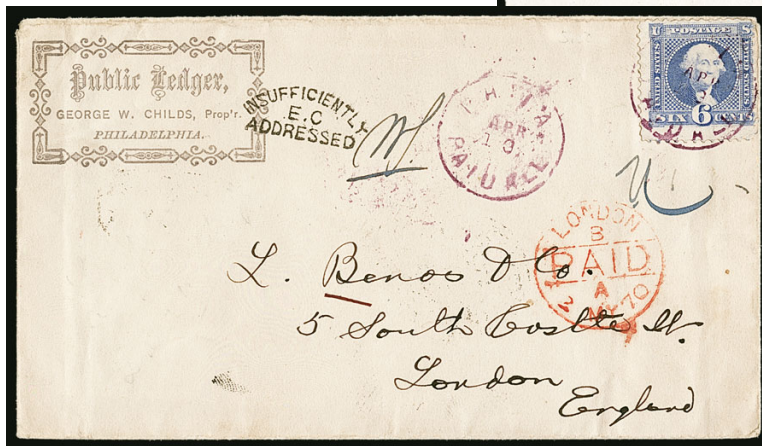 Public Ledger,
GEORGE W. CHILDS, Prop'r.
PHILADELPHIA.
INSUFFICIENTLY
E.C
ADDRESSED
PHILA
APR
PAID ALL
U POSTAGE S
UNITED STATES
UNITED STATES
APR
6
SIX CENTS
LONDON
B
PAID
A
MY 70
L. Benos & Co.
5 South St.
London
England